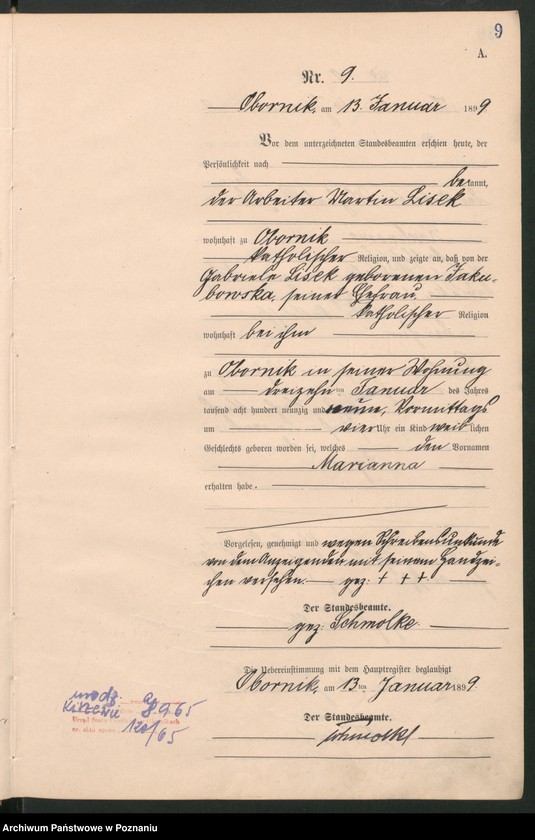 9
A.
Nr. 9.
Obornik, am 13. Januar 1899
Vor dem unterzeichneten Standesbeamten erschien heute, der
Persönlichkeit nach
bekannt,
der Arbeiter Martin Lisek
wohnhaft zu Obornik
katholischer Religion, und zeigte an, daß von der
Gabriele Lisek geborenen Jaku-
bowska, seiner Ehefrau
katholischer Religion
wohnhaft bei ihm
zu Obornik in seiner Wohnung
am dreizehnten Januar des Jahres
tausend acht hundert neunzig und neun, Vormittags
um vier Uhr ein Kind weiblichen
Geschlechts geboren worden sei, welches den Vornamen
Marianna
erhalten habe.
Vorgelesen, genehmigt und wegen Schreibensunkunde
von dem Anzeigenden mit seinem Handzei-
chen versehen. gez: + + +
Der Standesbeamte.
gez: Schmolke
Die Uebereinstimmung mit dem Hauptregister beglaubigt
Obornik, am 13ten Januar 1899.
Der Standesbeamte.
Schmolke
urodz.
965
120/65
Archiwum Państwowe w Poznaniu